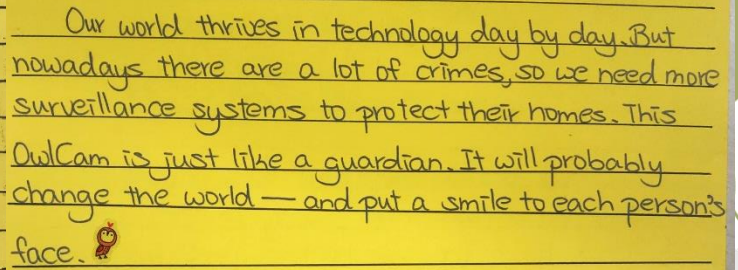 Our world thrives in technology day by day. But
nowadays there are a lot of crimes, so we need more
surveillance systems to protect their homes. This
OwlCam is just like a guardian. It will probably
change the world — and put a smile to each person's
face.